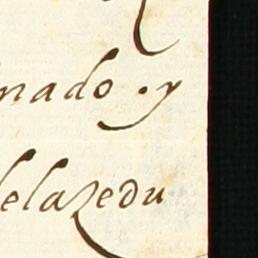 nado . y
delazedu